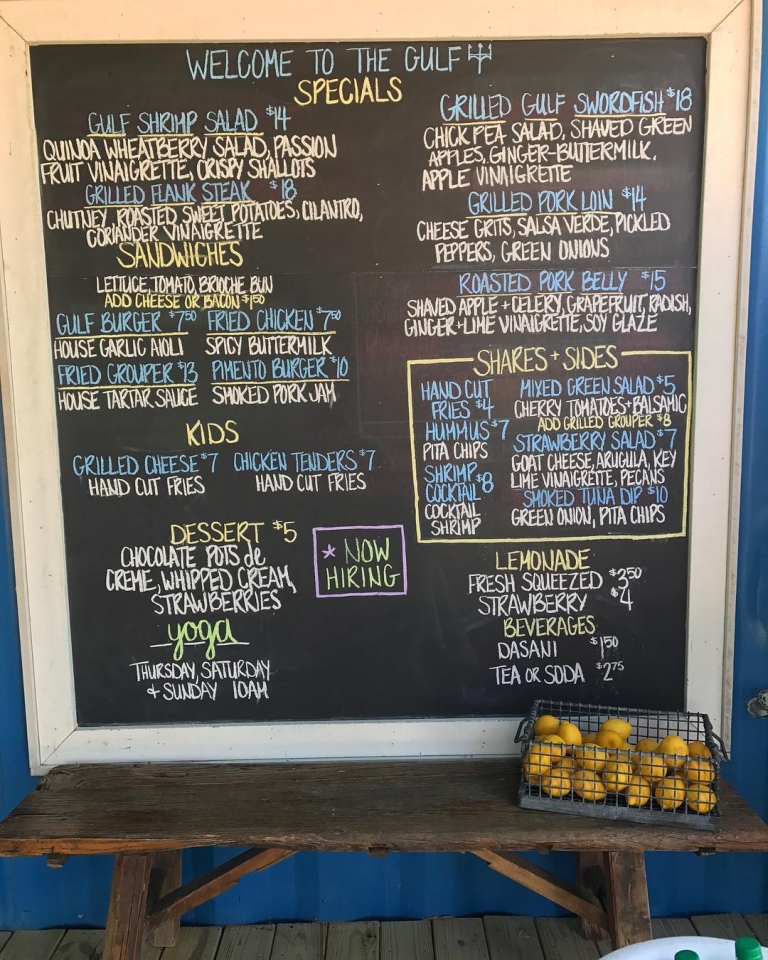 WELCOME TO THE GULF
SPECIALS
GULF SHRIMP SALAD $14
QUINOA WHEATBERRY SALAD, PASSION
FRUIT VINAIGRETTE, CRISPY SHALLOTS
GRILLED FLANK STEAK $18
CHUTNEY, ROASTED SWEET POTATOES, CILANTRO,
CORIANDER VINAIGRETTE
GRILLED GULF SWORDFISH $18
CHICK PEA SALAD, SHAVED GREEN
APPLES, GINGER-BUTTERMILK,
APPLE VINAIGRETTE
GRILLED PORK LOIN $14
CHEESE GRITS, SALSA VERDE, PICKLED
PEPPERS, GREEN ONIONS
ROASTED PORK BELLY $15
SHAVED APPLE + CELERY, GRAPEFRUIT, RADISH,
GINGER + LIME VINAIGRETTE, SOY GLAZE
SANDWICHES
LETTUCE, TOMATO, BRIOCHE BUN
ADD CHEESE OR BACON $1.50
GULF BURGER $7.50
HOUSE GARLIC AIOLI
FRIED CHICKEN $7.50
SPICY BUTTERMILK
FRIED GROUPER $13
HOUSE TARTAR SAUCE
PIMENTO BURGER $10
SMOKED PORK JAM
KIDS
GRILLED CHEESE $7
HAND CUT FRIES
CHICKEN TENDERS $7
HAND CUT FRIES
SHARES + SIDES
HAND CUT
FRIES $4
HUMMUS $7
PITA CHIPS
SHRIMP
COCKTAIL $8
COCKTAIL
SHRIMP
MIXED GREEN SALAD $5
CHERRY TOMATOES + BALSAMIC
ADD GRILLED GROUPER $8
STRAWBERRY SALAD $7
GOAT CHEESE, ARUGULA, KEY
LIME VINAIGRETTE, PECANS
SMOKED TUNA DIP $10
GREEN ONION, PITA CHIPS
DESSERT $5
CHOCOLATE POTS de
CREME, WHIPPED CREAM,
STRAWBERRIES
* NOW
HIRING
yoga
THURSDAY, SATURDAY
+ SUNDAY 10AM
LEMONADE
FRESH SQUEEZED $3.50
STRAWBERRY $4
BEVERAGES
DASANI $1.50
TEA OR SODA $2.75